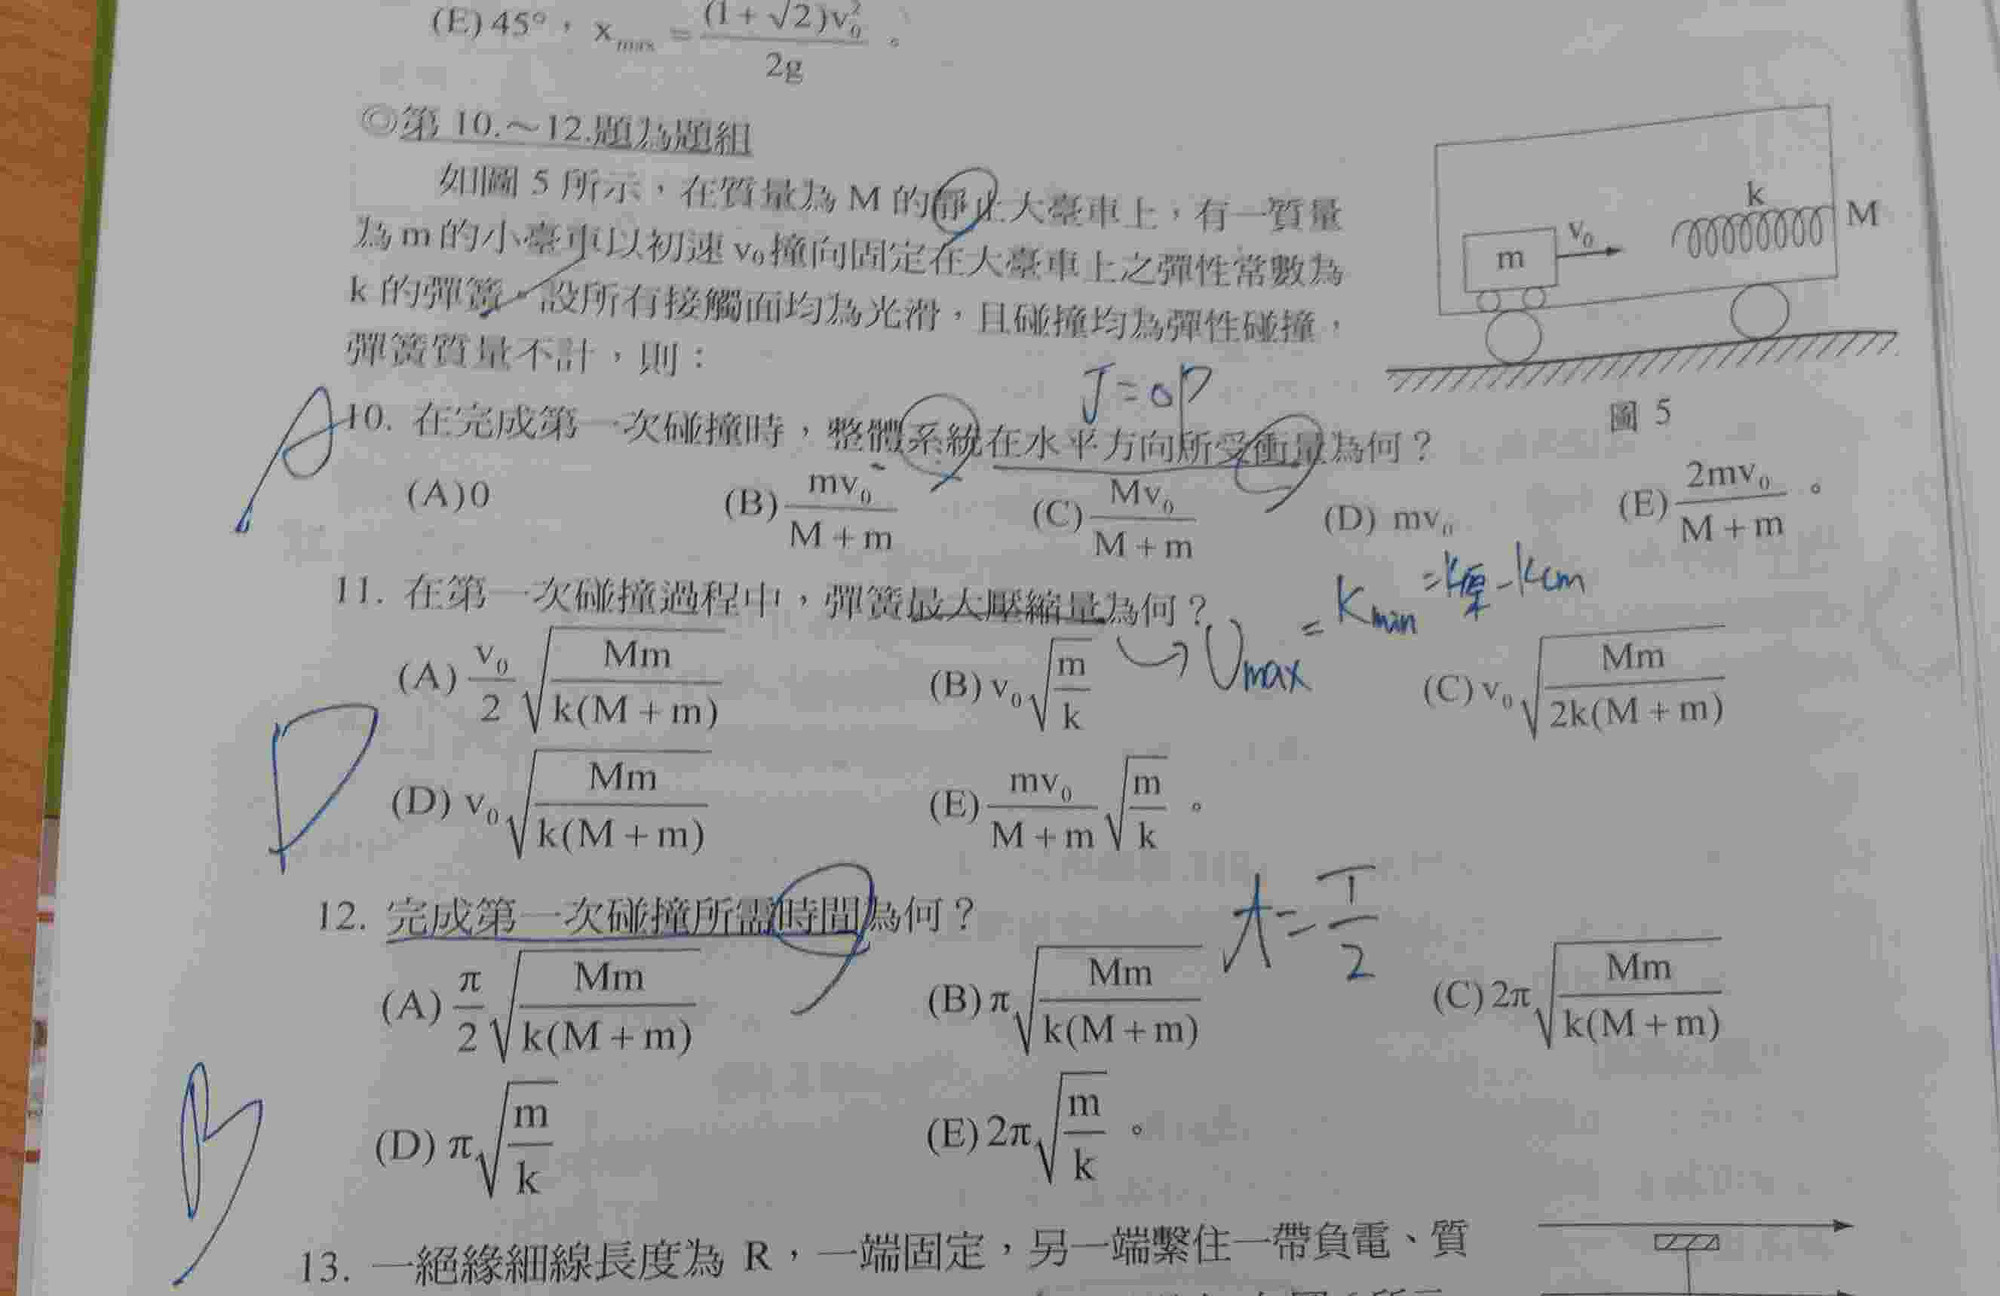 (E) 45°，x_max = (1+√2)v₀²/2g 。
◎第 10.～12.題為題組
如圖 5 所示，在質量為 M 的靜止大臺車上，有一質量
為 m 的小臺車以初速 v₀ 撞向固定在大臺車上之彈性常數為
k 的彈簧。設所有接觸面均為光滑，且碰撞均為彈性碰撞，
彈簧質量不計，則：
m v₀ k M
圖 5
J = ΔP
A
10. 在完成第一次碰撞時，整體系統在水平方向所受衝量為何？
(A) 0 (B) mv₀/(M+m) (C) Mv₀/(M+m) (D) mv₀ (E) 2mv₀/(M+m) 。
11. 在第一次碰撞過程中，彈簧最大壓縮量為何？
→ Umax = Kmin = K原 - Kcm
(A) v₀/2 √(Mm/(k(M+m))) (B) v₀ √(m/k) (C) v₀ √(Mm/(2k(M+m)))
D
(D) v₀ √(Mm/(k(M+m))) (E) mv₀/(M+m) √(m/k) 。
12. 完成第一次碰撞所需時間為何？
t = T/2
(A) π/2 √(Mm/(k(M+m))) (B) π √(Mm/(k(M+m))) (C) 2π √(Mm/(k(M+m)))
B
(D) π √(m/k) (E) 2π √(m/k) 。
13. 一絕緣細線長度為 R，一端固定，另一端繫住一帶負電、質